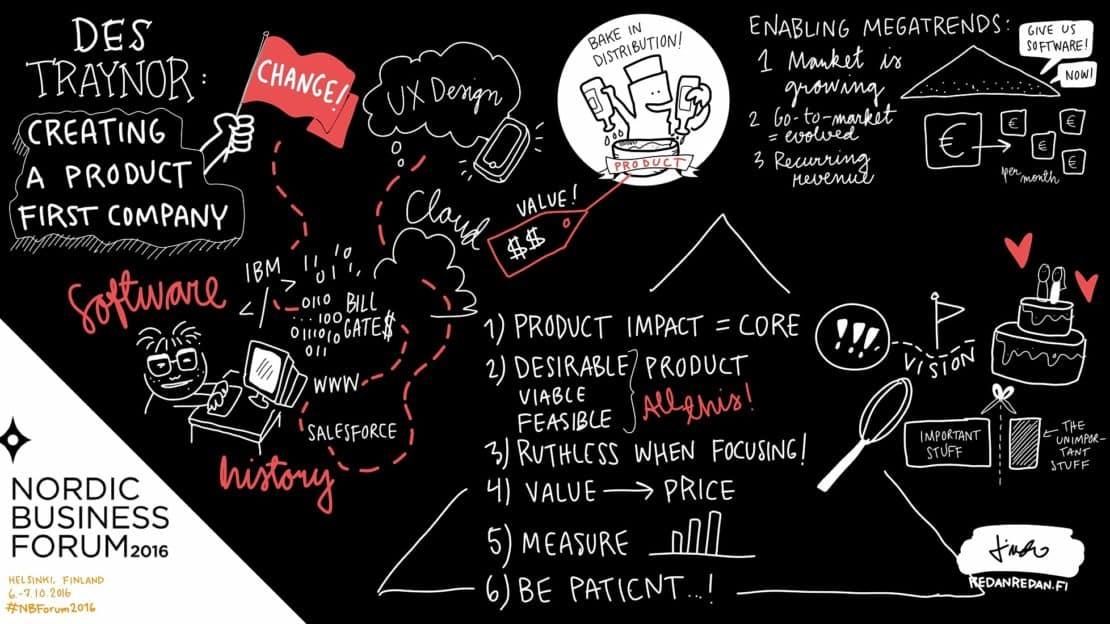 DES
TRAYNOR:
CREATING
A PRODUCT
FIRST COMPANY
CHANGE!
UX Design
Cloud
Software
IBM
</>
0110
...100
011010
011
BILL
GATE$
WWW
SALESFORCE
history
BAKE IN
DISTRIBUTION!
PRODUCT
VALUE!
$$
ENABLING MEGATRENDS:
1 Market is
growing
2 Go-to-market
= evolved
3 Recurring
revenue
GIVE US
SOFTWARE!
NOW!
€
€
€
€
€
per month
1) PRODUCT IMPACT = CORE
2) DESIRABLE } PRODUCT
VIABLE
FEASIBLE
All this!
3) RUTHLESS WHEN FOCUSING!
4) VALUE → PRICE
5) MEASURE
6) BE PATIENT...!
!!!
VISION
IMPORTANT
STUFF
THE
UNIMPOR-
TANT
STUFF
REDANREDAN.FI
NORDIC
BUSINESS
FORUM 2016
HELSINKI, FINLAND
6.-7.10.2016
#NBForum2016